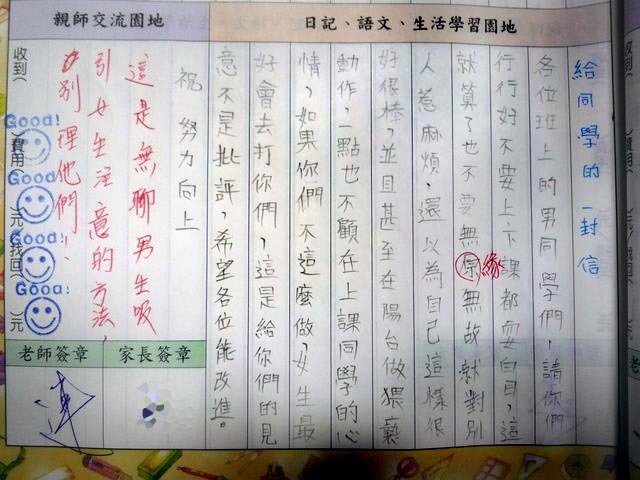 日記、語文、生活學習園地
給同學的一封信
各位班上的男同學們,請你們
行行好不要上下課都耍白目,這
就算了也不要無原無故就對別
緣
人惹麻煩,還以為自己這樣很
好很棒,並且甚至在陽台做猥褻
動作,一點也不顧在上課同學的心
情,如果你們不這麼做,女生最
好會去打你們,這是給你們的見
意不是批評,希望各位能改進。
祝 努力向上
親師交流園地
這是無聊男生吸
引女生注意的方法,
別理他們!
收到( )費用( )元/找回( )元
Good!
Good!
Good!
Good!
家長簽章
老師簽章